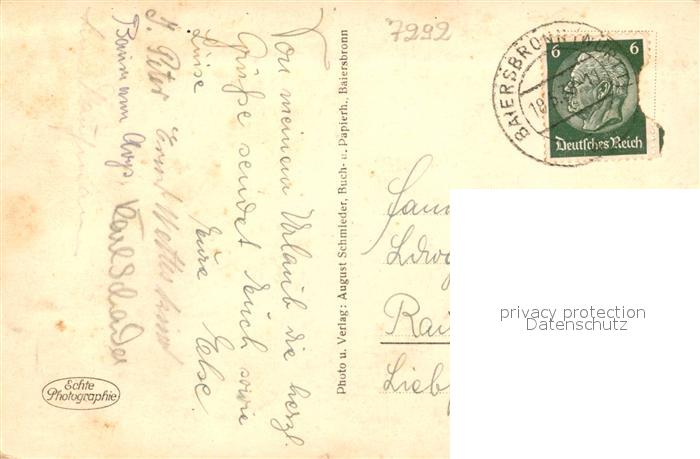 7292
BAIERSBRONN (WÜRTT)
6 6
Deutsches Reich
Von meinem Urlaub die herzl.
Grüße sendet Euch sowie
Luise Eure Else
J. Peter Ernst
Karl Schaider
Photo u. Verlag: August Schmieder, Buch- u. Papierh., Baiersbronn
Echte
Photographie
Fam
Ludwig
Rai
Lieb
privacy protection
Datenschutz